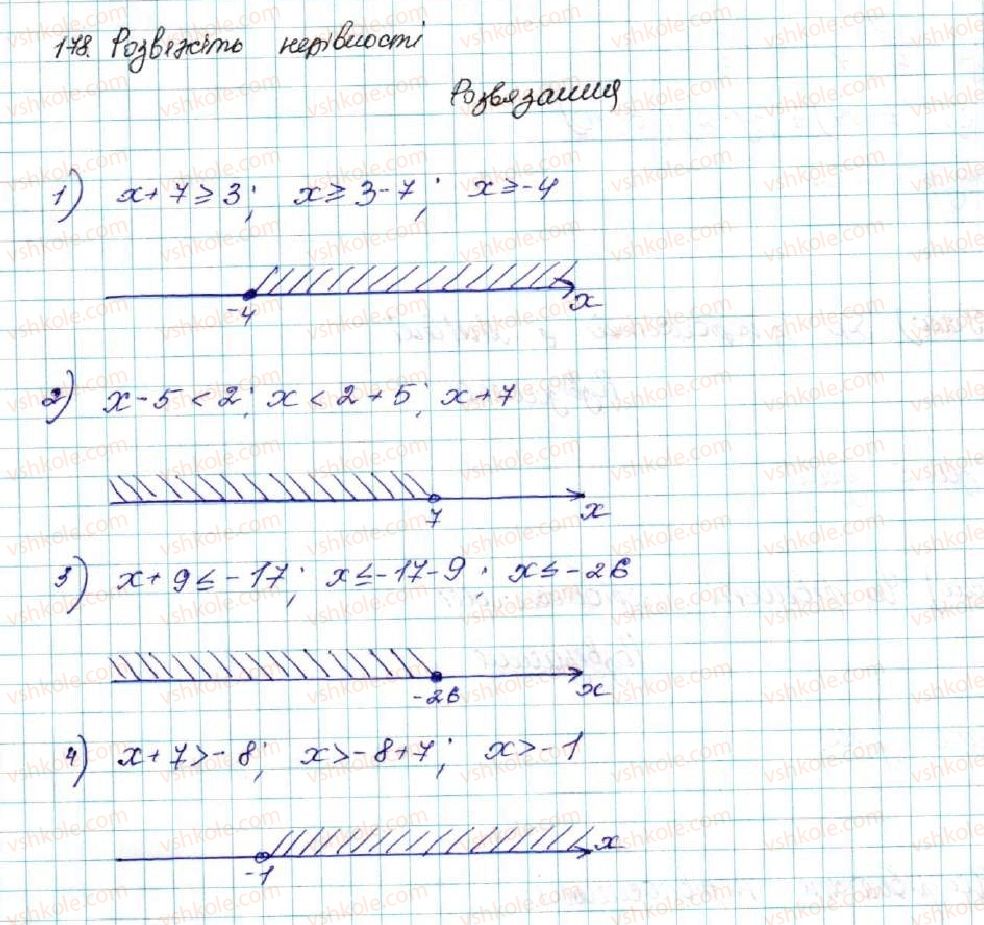 178. Розвяжіть нерівності
Розвязання
1) x + 7 ≥ 3; x ≥ 3 - 7; x ≥ -4
-4 x
2) x - 5 < 2; x < 2 + 5; x + 7
7 x
3) x + 9 ≤ -17; x ≤ -17 - 9; x ≤ -26
-26 x
4) x + 7 > -8; x > -8 + 7; x > -1
-1 x